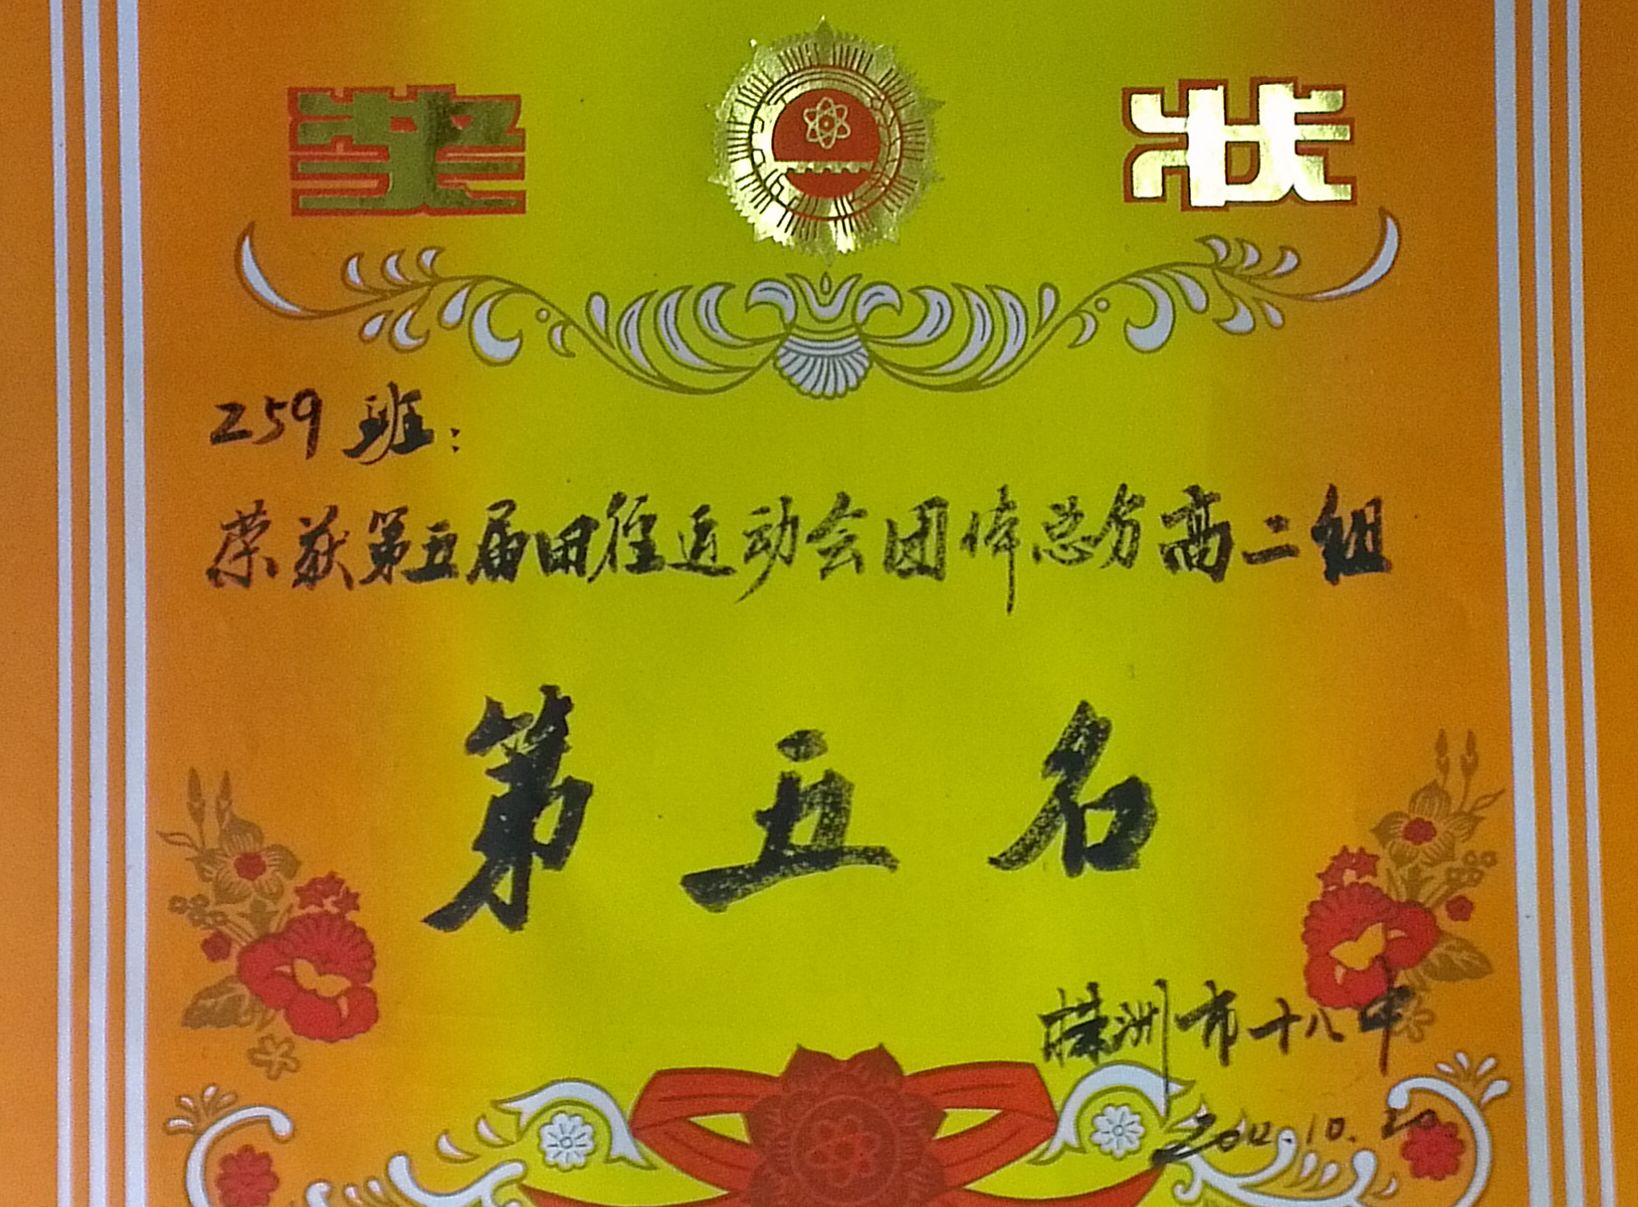 奖状
259班：
荣获第五届田径运动会团体总分高二组
第五名
株洲市十八中
2012.10.20